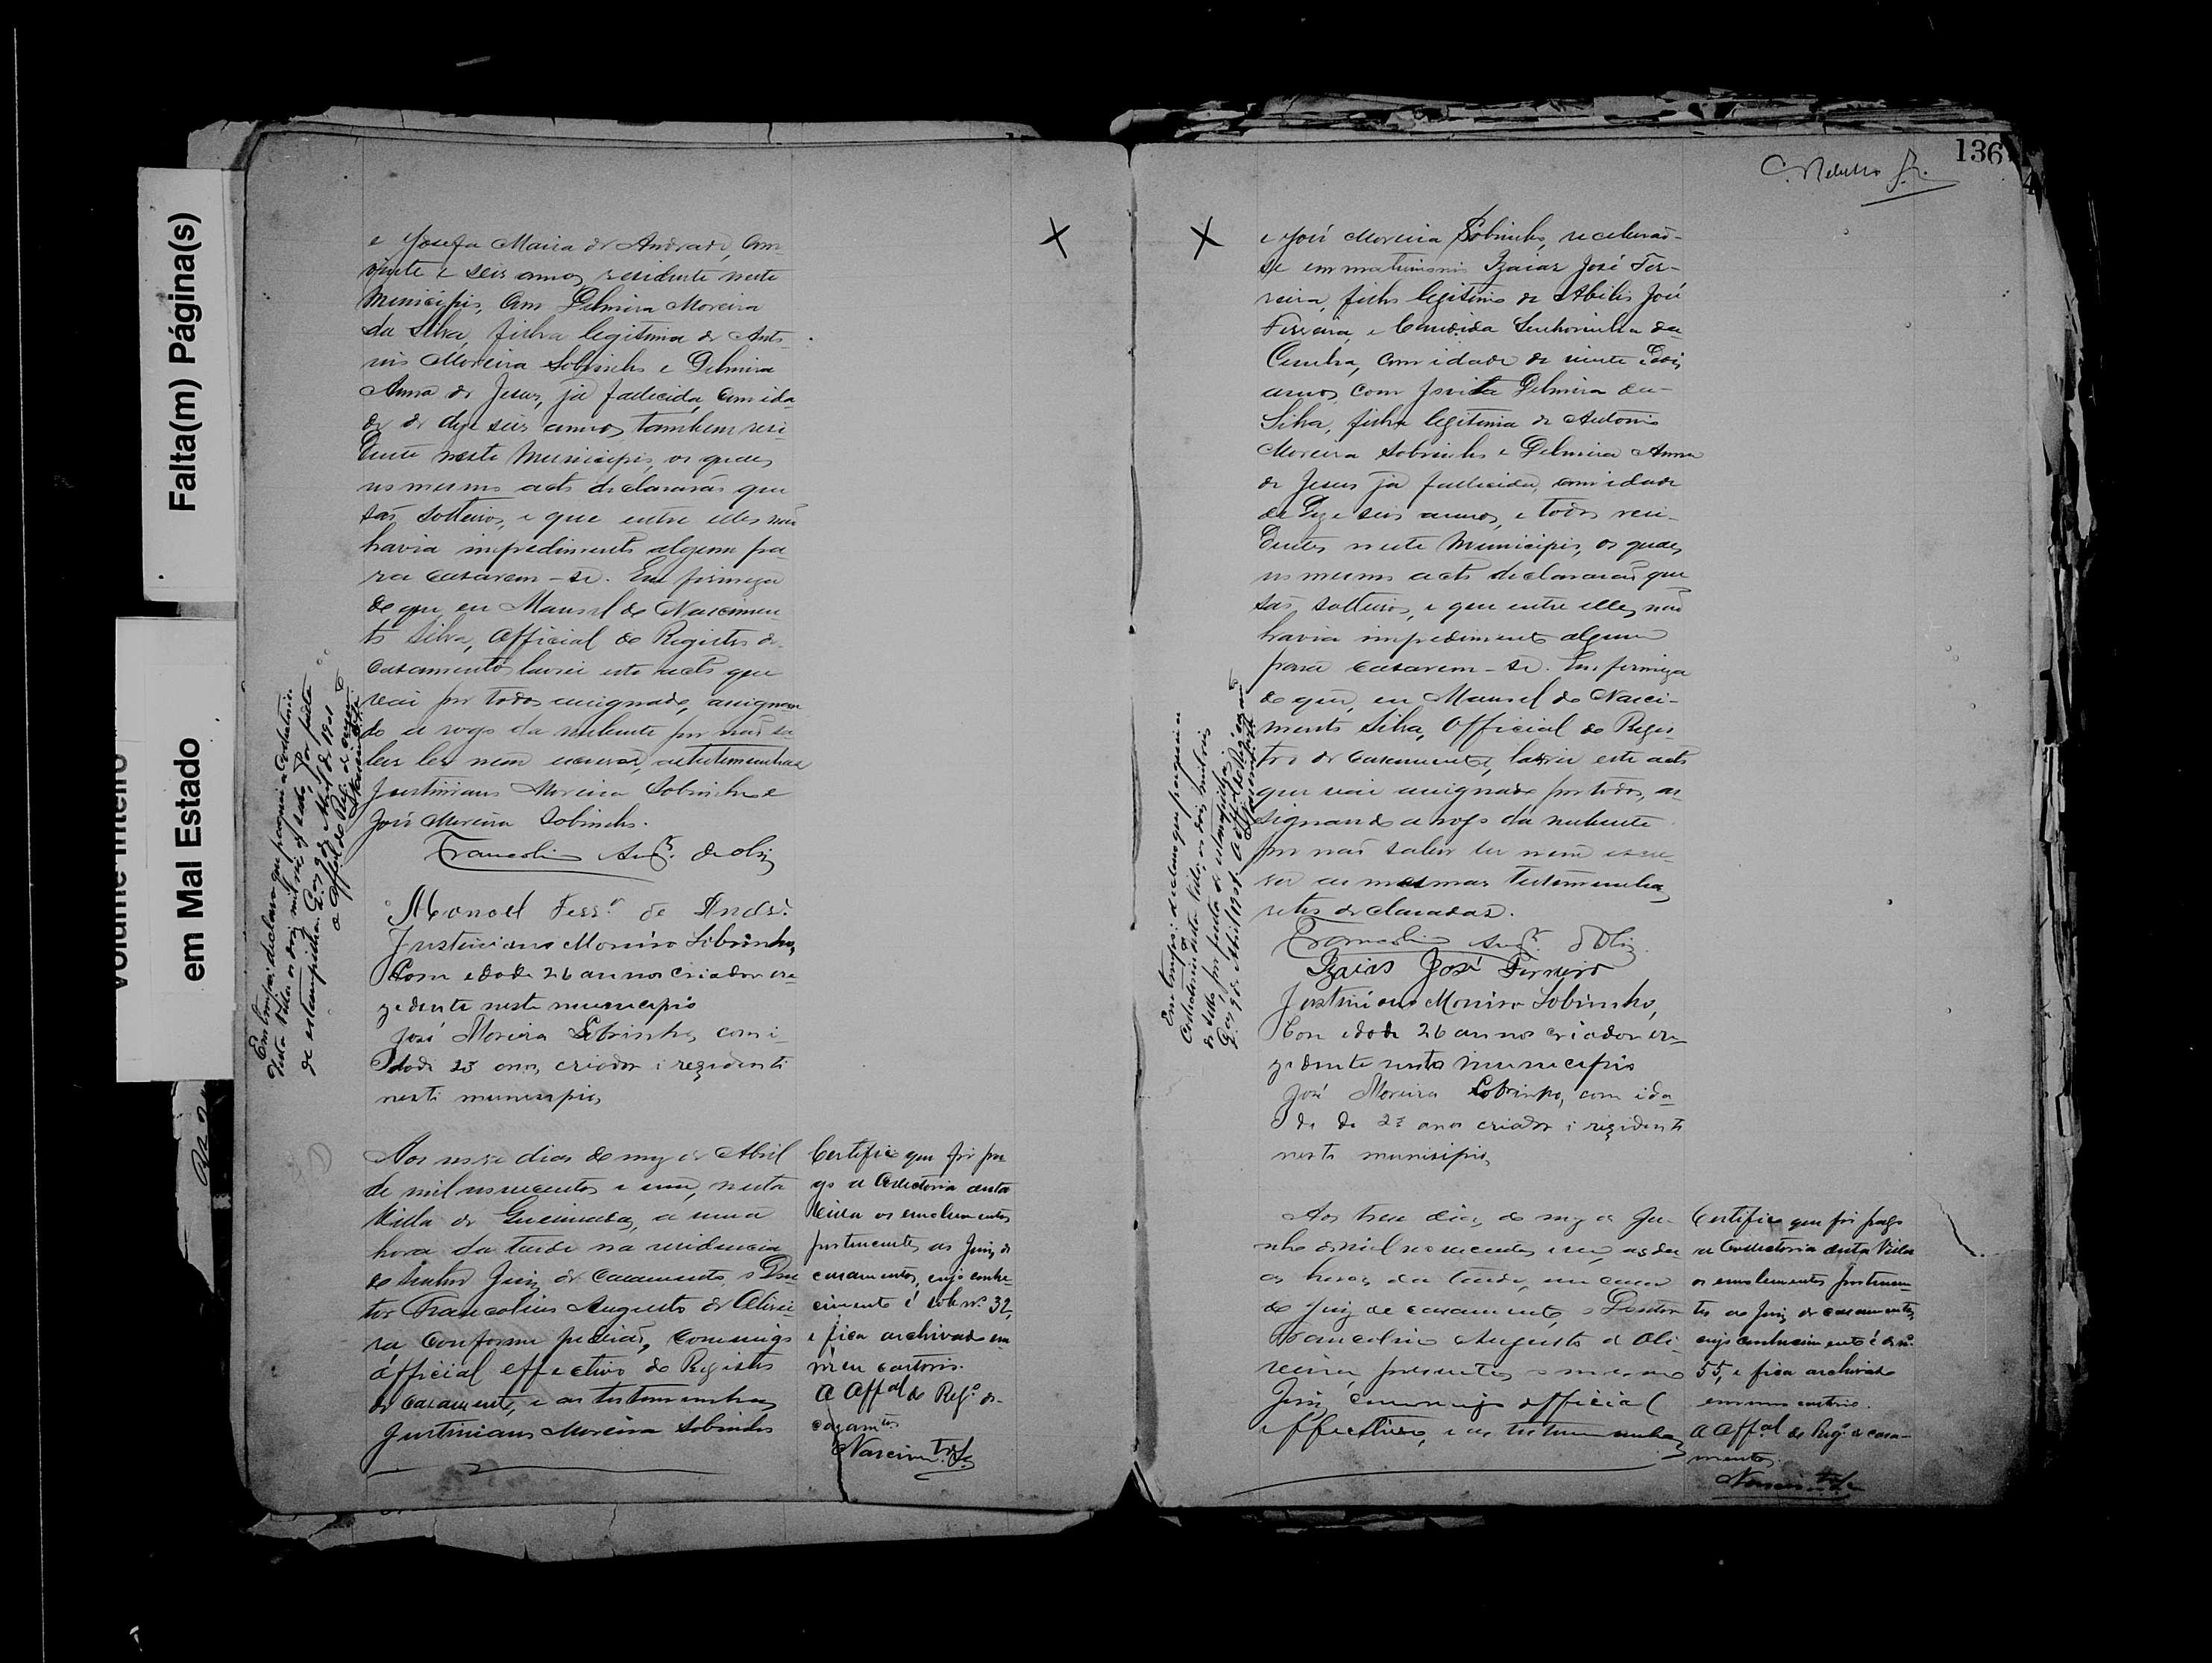 Falta(m) Página(s)
Volume Inteiro
em Mal Estado
e Josefa Maria de Andrade, com
vinte e seis annos, residente neste
Municipio, com Delmira Moreira
da Silva, filha legitima de Anto-
nio Moreira Sobrinho e Delmira
Anna de Jesus, já fallecida, com ida-
de de deze seis annos, tambem resi-
dente neste Municipio, os quaes
no mesmo acto declararão que
são solteiros, e que entre elles não
havia impedimento algum pa
ra casarem-se. Em firmeza
do que eu Manoel do Nascimen-
to Silva, Official do Registro de
casamentos lavrei este acto que
vai por todos assignado, assignan
do a rogo da nubente por não sa-
ber ler nem escrever, as testemunhas
Justiniano Moreira Sobrinho e
José Moreira Sobrinho.
Francolino Aug.to de Olivª
Manoel Ferrª de Andrª
Justiniano Moreira Sobrinho,
Com edade 26 annos criador e re-
zedente neste municipio
José Moreira Sobrinho, com i-
dade 23 anos, criador i rezidenti
nesti municipio,
Em tempo: declaro que pagou a Colectoria
desta Villa os dois mil réis de sello, por falta
de estampilha. Q.das 9 de Abril de 1901
O Offal do Reg.º de casam.tos
Aos nove dias do mez de Abril
de mil novecentos e um, nesta
Villa de Queimadas, a uma
hora da tarde na residencia
do senhor Juiz de Casamentos, o Dou
tor Francolino Augusto de Olivei-
ra, conforme pedirão, commigo
official effectivo do Registro
de Casamento, e as testemunhas
Justiniano Moreira Sobrinho
Certifico que foi pa
go a Collectoria desta
Villa os emolumentos
pertencentes ao Juiz de
casamentos, cujo conhe-
cimento é sob nº 32,
e fica archivado em
meu cartorio.
O Offal do Reg.º de
cazam.tos
Nascim.to Sª
136
e José Moreira Sobrinho, receberão-
se em matrimonio Izaias José Fer-
reira, filho legitimo de Abilio José
Ferreira, e Candida Senhorinha da
Cunha, com idade de vinte e dois
annos, com Jovita Delmira da
Silva, filha legitima de Antonio
Moreira Sobrinho e Delmira Anna
de Jesus já fallecida, com idade
de deze seis annos, e todos resi-
dentes neste Municipio, os quaes
no mesmo acto declararão que
são solteiros, e que entre elles não
havia impedimento algum
para casarem-se. Em firmeza
do que, eu Manoel do Nasci-
mento Silva, Official do Regis
tro de casamento, lavrei este acto
que vai assignado por todos, as
signando a rogo da nubente
por não saber ler nem escre-
ver as mesmas testemunhas
retro declaradas.
Francolino Aug.to d'Olivª
Izaias José Ferreira
Justiniano Moreira Sobrinho,
Com edade 26 annos criador e re-
zedente nesto municipio
José Moreira Sobrinho, com ida-
de de 23 anos criador i rezidenti
nesti municipio,
Em tempo: declaro que pagou a
Colectoria desta Villa os dois mil réis
de sello, por falta de estampilha.
Q.das 9 de Abril 1901. O Offal do Reg.º de casam.tos
Aos treze dias do mez de Ju-
nho de mil novecentos e um, as du
as horas da tarde, em casa
do Juiz de casamento, o Doutor
Francolino Augusto de Oli-
veira, presentes o mesmo
Juiz, commigo official
effectivo, e as testemunhas
Certifico que foi pago
a Collectoria desta Villa
os emolumentos pertencen-
tes ao Juiz de casamentos,
cujo conhecimento é de nº
55, e fica archivado
em meu cartorio.
O Offal do Reg.º de casa-
mentos.
Nascim.to Sª